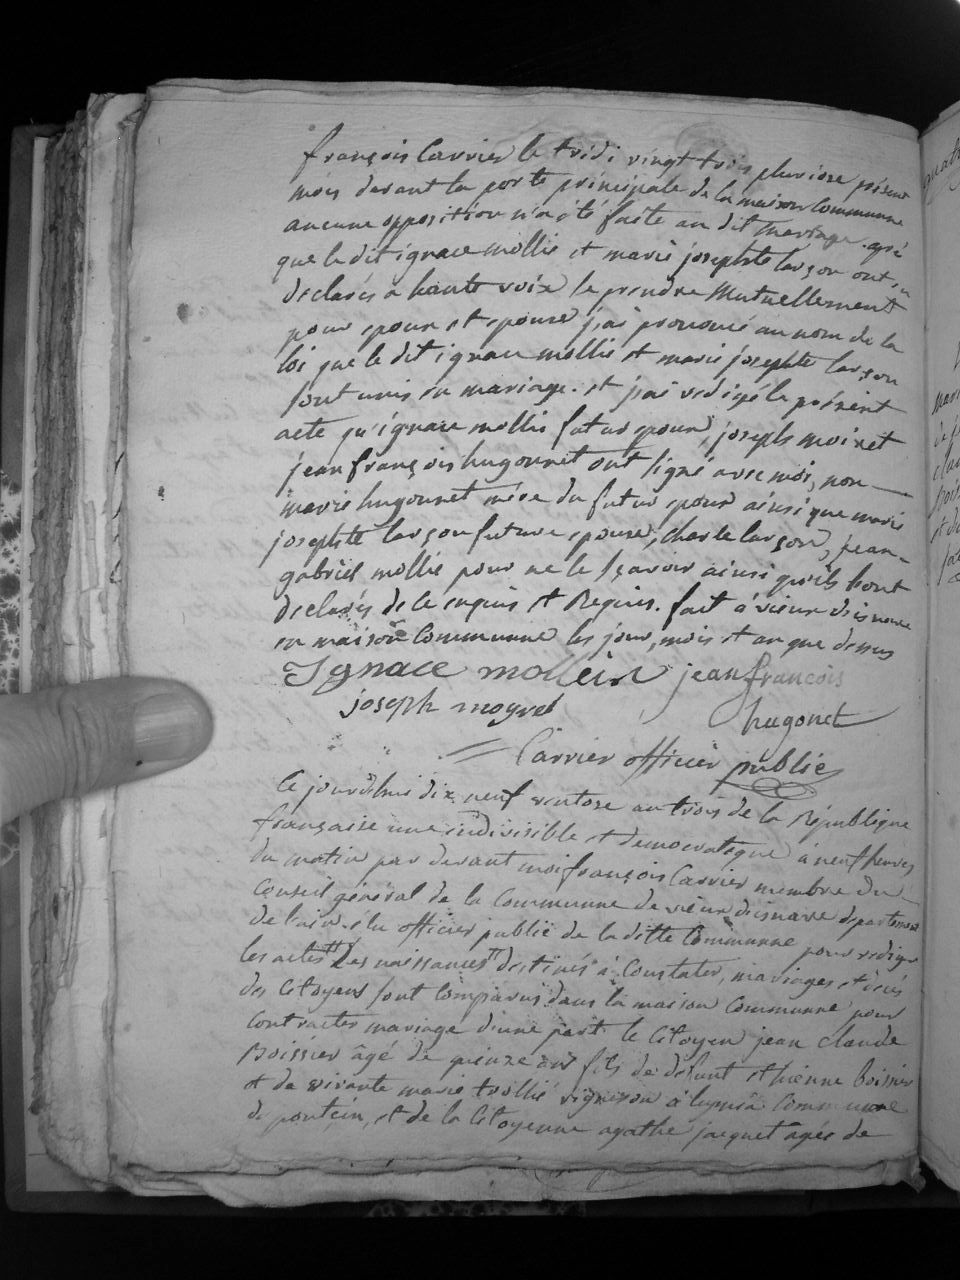 françois Carrier le tridi vingt trois pluviose présent
mois devant la porte principale de la maison Commune
aucune opposition n'a été faite au dit mariage. apré
que le dit ignace mollie et marie josephte larçon ont
declarés a haute voix le prendre Mutuellement
pour epoux et epouse j'ai prononcé au nom de la
loi que le dit ignace mollie et marie josephte larçon
sont unis en mariage. et j'ai redigé le présent
acte qu'ignace mollie futur epoux, joseph moiret
jean françois hugonnet ont signé avec moi, non
marie hugonnet mère du futur epoux ainsi que marie
josephte larçon future epouse, charle larçon, jean
gabriel mollie pour ne le sçavoir ainsi qu'ils l'ont
declarés de ce enquis et Requis. fait à vieux disnave
en maison Commune les jour, mois et an que dessus
Ignace mollein jean francois
joseph moyret hugonet
Carrier officier public
Ce jourd'hui dix neuf ventose an trois de la République
française une indivisible et democratique à neuf heures
du matin par devant moi françois Carrier membre du
Conseil général de la Commune de vieux disnave departement
de l'ain. elu officier public de la ditte Commune pour rediger
les actes des naissances destinés à Constater, mariages et décés
des Citoyens sont Comparus dans la maison Commune pour
Contracter mariage d'une part le Citoyen jean claude
Boissier âgé de quinze ans fils de defunt ethienne boissier
et de vivante marie trollie vigneron à Commune
de poncin, et de la Citoyenne agathe jacquet agée de